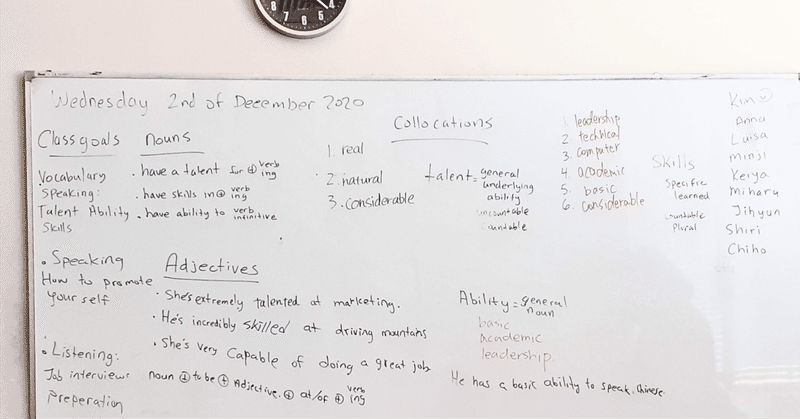 8 7 6 5 4
Wednesday 2nd of December 2020
Class goals
Vocabulary
Speaking:
Talent Ability
Skills
• Speaking
How to promote
yourself
• Listening:
Job interviews
Preperation
nouns
• have a talent for ⊕ verb ing
• have skills in ⊕ verb ing
• have ability to verb infinitive
Adjectives
• She's extremely talented at marketing.
• He's incredibly skilled at driving mountains
• She's very capable of doing a great job
noun ⊕ to be ⊕ Adjective ⊕ at/of ⊕ verb ing
Collocations
1. real
2. natural
3. considerable
talent = general
underlying
ability
uncountable
countable
1. leadership
2. technical
3. computer
4. academic
5. basic
6. considerable
Skills
Specific
learned
countable
Plural
Ability = general
noun
basic
academic
leadership
He has a basic ability to speak Chinese.
Kim
Anna
Luisa
Minji
Keiya
Miharu
Jihyun
Shiri
Chiho